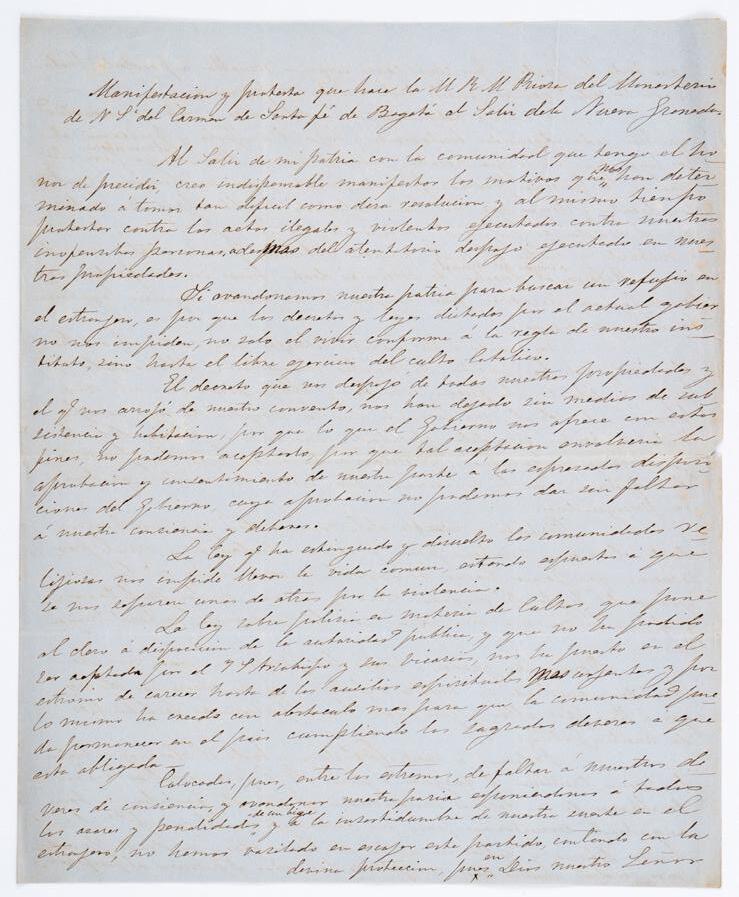 Manifestacion y protesta que hace la M R M Priora del Monasterio
de N Sª del Carmen de Santa fé de Bogotá al Salir dela Nueva Granada.
Al Salir de mi patria con la comunidad que tengo el ho
nor de precidir, creo indispensable manifestar los motivos qe nos han deter
minado á tomar tan dificil como dura resolucion, y al mismo tiempo
protestar contra los actos ilegales y violentos ejecutados contra nuestras
inofensibas personas, ademas del atentatorio despojo ejecutado en nues
tras propiedades.
Si avandonamos nuestra patria para buscar un refugio en
el estranjero, es por que los decretos y leyes dictados por el actual gobier
no nos impiden, no solo el vivir conforme á la regla de nuestro ins
tituto, sino hasta el libre ejercicio del culto Catolico.
El decreto que nos despojó de todas nuestras propiedades y
el qe nos arrojó de nuestro convento, nos han dejado sin medios de sub
sistencia y habitacion, por que lo que el Gobierno nos ofrece con estos
fines, no podemos aceptarlo, por que tal aceptacion envolveria la
aprobacion y consentimiento de nuestra parte á las espresadas disposi
ciones del Gobierno, cuya aprobacion no podemos dar sin faltar
á nuestra consiencia y deberes.
La ley qe ha estinguido y disuelto las comunidades re
lijiosas nos impide llevar la vida comun, estando espuestas a que
se nos separe unas de otras por la violencia.
La ley sobre policia en materia de Cultos, que pone
al clero á disposicion de la autoridad publica, y que no ha podido
ser aceptada por el Y S Arzobispo y sus vicarios, nos ha puesto en el
estremo de carecer hasta de los auxilios espirituales mas urjentes y por
lo mismo ha creado un obstaculo mas para que la comunidad pue
da permanecer en el pais cumpliendo los sagrados deberes a que
esta obligada.
Colocadas, pues, entre los estremos, de faltar á nuestros de
veres de consiencia, y avandonar nuestra patria esponiendonos a todos
los azares y penalidades de un viaje y á la insertidumbre de nuestra suerte en el
estranjero, no hemos vasilado en escojer este partido, contando con la
devina proteccion, pues en Dios nuestro Señor